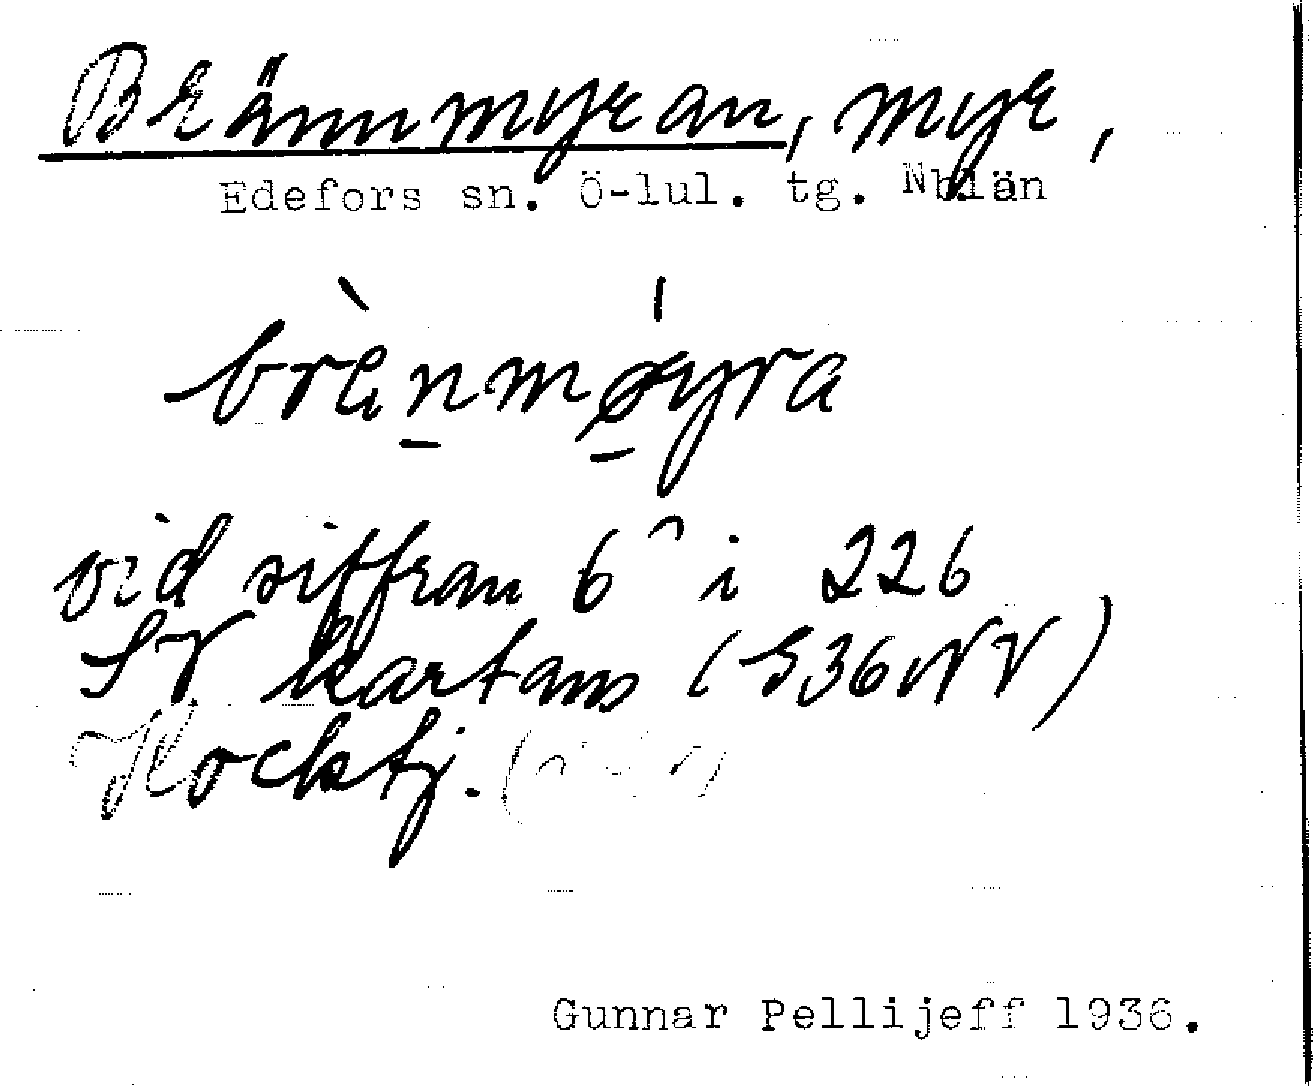 Brännmyran, myr,
Edefors sn. Ö-lul. tg. Nblän
brènmøyra
vid siffran 6 i 226
SV kartans (S36NV)
Kocktj.
Gunnar Pellijeff 1936.